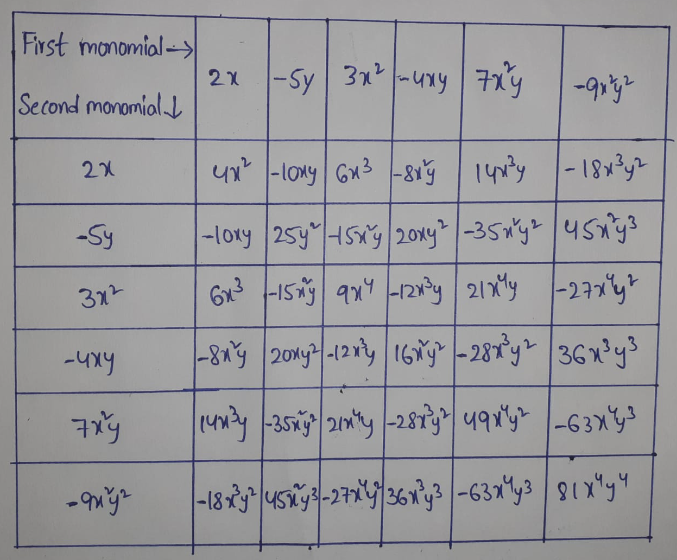 First monomial →
Second monomial ↓
2x -5y 3x² -4xy 7x²y -9x²y²
2x 4x² -10xy 6x³ -8x²y 14x³y -18x³y²
-5y -10xy 25y² -15x²y 20xy² -35x²y² 45x²y³
3x² 6x³ -15x²y 9x⁴ -12x³y 21x⁴y -27x⁴y²
-4xy -8x²y 20xy² -12x³y 16x²y² -28x³y² 36x³y³
7x²y 14x³y -35x²y² 21x⁴y -28x³y² 49x⁴y² -63x⁴y³
-9x²y² -18x³y² 45x²y³ -27x⁴y² 36x³y³ -63x⁴y³ 81x⁴y⁴